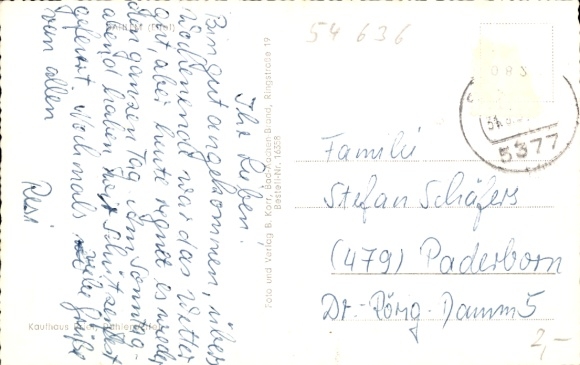 54 636
Ihr Lieben!
Bin gut angekommen, übers
Wochenend war das Wetter
gut, aber heute regnet es wieder
den ganzen Tag. Am Sonntag-
abend haben wir Schützenfest
gefeiert. Nochmals viele Grüße
an allen
Resi
Foto und Verlag B. Korr, Bad Aachen-Brand, Ringstraße 19
Bestell-Nr. 16558
Kaufhaus
5377
Familie
Stefan Schäfers
(479) Paderborn
Dr.-Rörig-Damm 5
2,-